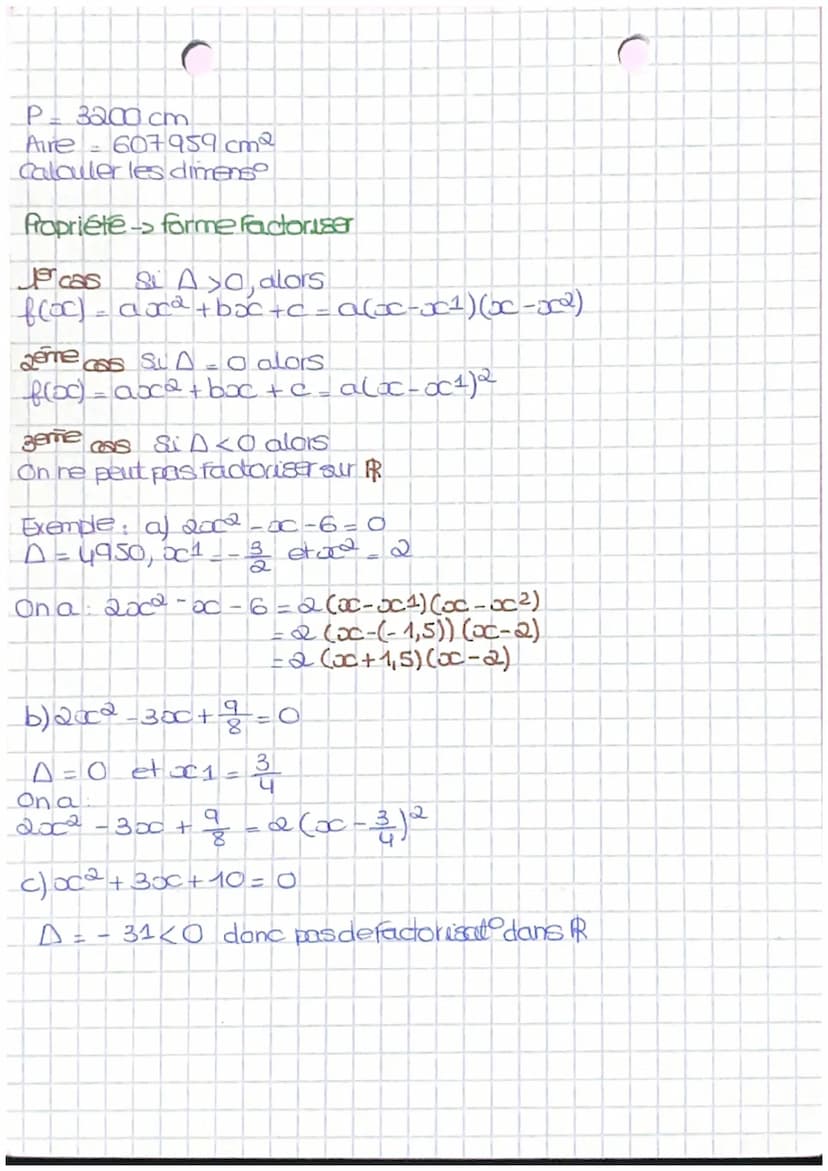 P = 3200 cm
Aire = 607959 cm²
Calculer les dimens°
Propriété -> forme factoriser
1er cas Si Δ >0, alors
f(x) = ax² + bx + c = a(x-x1)(x-x2)
2ème cas Si Δ = 0 alors
f(x) = ax² + bx + c = a(x-x1)²
3eme cas Si Δ < 0 alors
On ne peut pas factoriser sur ℝ
Exemple : a) 2x² - x - 6 = 0
Δ = 4950, x1 = -3/2 et x2 = 2
On a : 2x² - x - 6 = 2(x-x1)(x-x2)
= 2 (x-(-1,5)) (x-2)
= 2 (x+1,5)(x-2)
b) 2x² - 3x + 9/8 = 0
Δ = 0 et x1 = 3/4
On a :
2x² - 3x + 9/8 = 2 (x - 3/4)²
c) x² + 3x + 10 = 0
Δ = - 31 < 0 donc pas de factorisat° dans ℝ